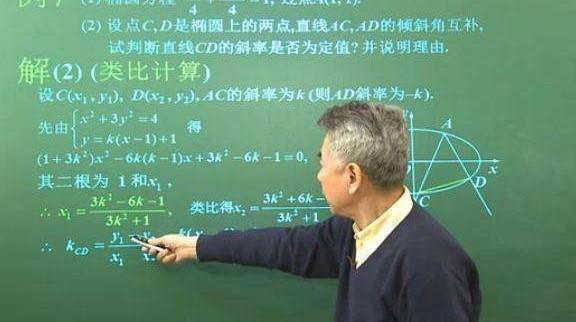 (1) 椭圆方程 4 + 4 = 1, 过点A(1, 1).
(2) 设点C, D是椭圆上的两点,直线AC, AD的倾斜角互补,
试判断直线CD的斜率是否为定值? 并说明理由.
解(2) (类比计算)
设C(x₁, y₁), D(x₂, y₂), AC的斜率为k (则AD斜率为–k).
先由{x² + 3y² = 4
y = k(x – 1) + 1 得
(1 + 3k²)x² – 6k(k – 1)x + 3k² – 6k – 1 = 0,
其二根为 1 和x₁ ,
∴ x₁ = (3k² – 6k – 1)/(3k² + 1), 类比得x₂ = 3k² + 6k – / 3k² + 1
∴ k_CD = y₁ – / x₁ k(x
A
x
D
C